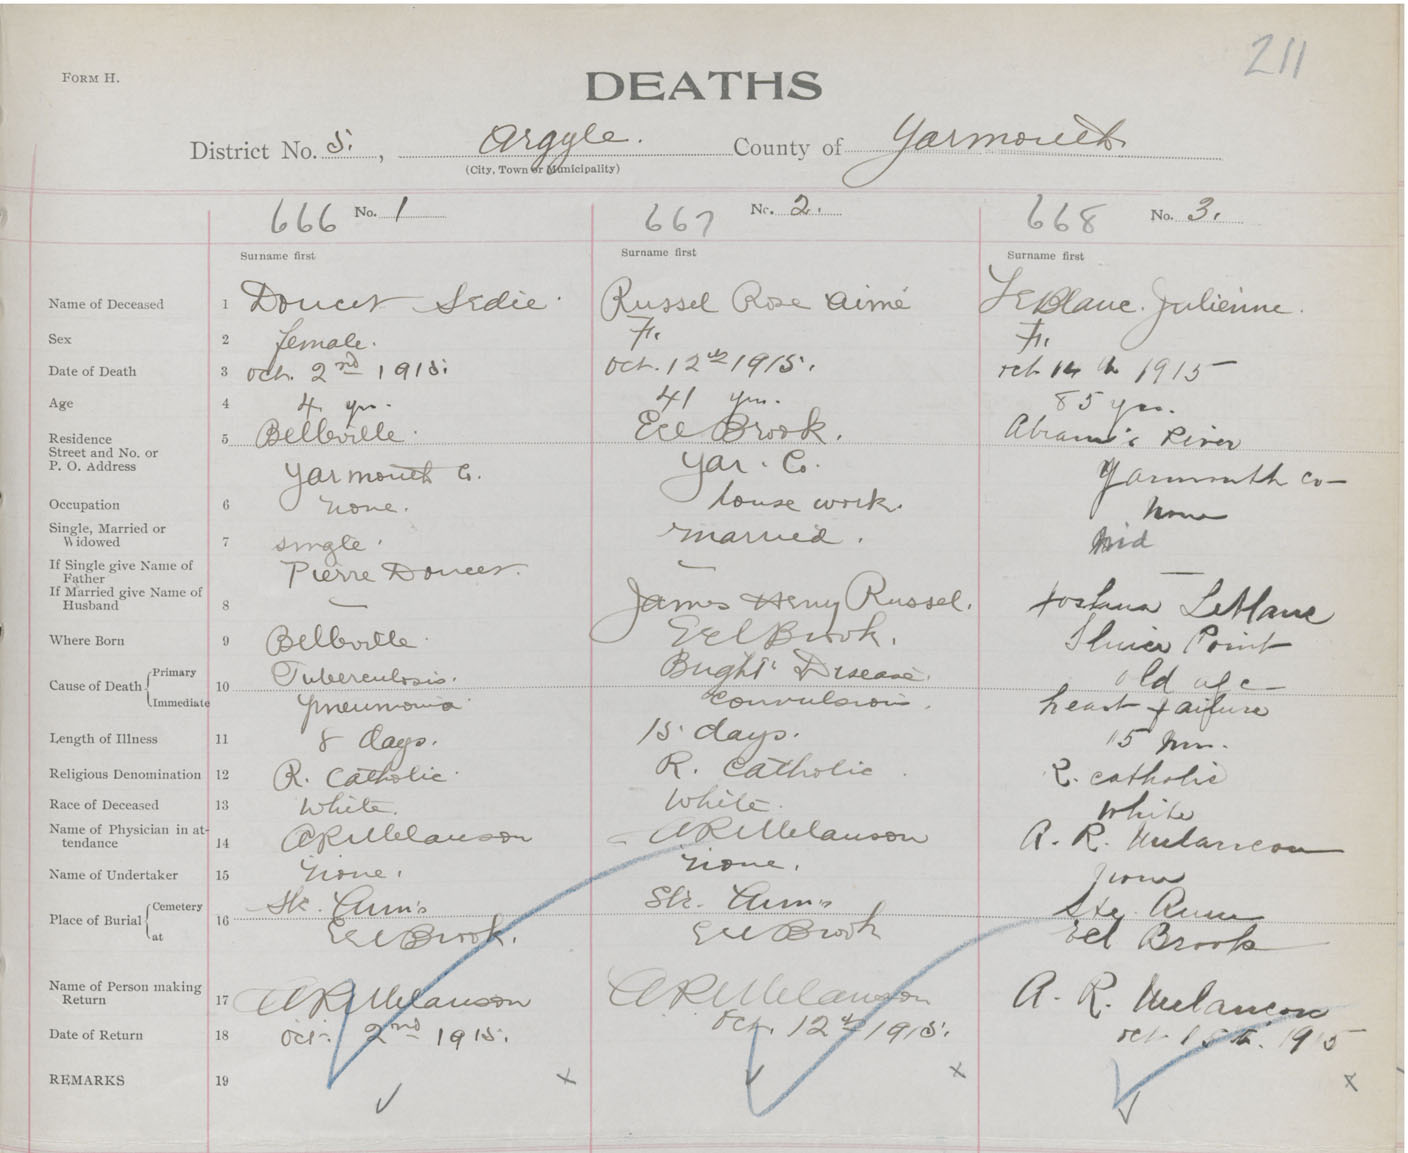 211
FORM H.
DEATHS
District No. 5. , Argyle. County of Yarmouth
(City, Town or Municipality)
666 No. 1 667 No. 2. 668 No. 3.
Surname first Surname first Surname first
Name of Deceased 1 Doucet Sedie. Russel Rose Aimé LeBlanc. Julienne.
Sex 2 female. F. F.
Date of Death 3 Oct. 2nd 1915. Oct. 12th 1915. Oct 14th 1915
Age 4 4 yrs. 41 yrs. 85 yrs.
Residence 5 Belleville. Eel Brook. Abram's River
Street and No. or
P. O. Address Yarmouth Co. Yar. Co. Yarmouth Co
Occupation 6 none. house work. none
Single, Married or
Widowed 7 single. married. Wid
If Single give Name of
Father Pierre Doucet. — —
If Married give Name of
Husband 8 — James Henry Russel. LeBlanc
Where Born 9 Belleville. Eel Brook. Sluice Point
Cause of Death Primary 10 Tuberculosis. Bright's Disease. old age
Immediate pneumonia convulsion. heart failure
Length of Illness 11 8 days. 15 days. 15
Religious Denomination 12 R. Catholic. R. Catholic. R. catholic
Race of Deceased 13 White. White. White
Name of Physician in at-
tendance 14 A R Melanson A R Melanson A. R. Melancon
Name of Undertaker 15 none. none. none
Place of Burial Cemetery 16 Ste. Ann's Ste. Ann's Ste. Anne
at Eel Brook. Eel Brook Eel Brook
Name of Person making
Return 17 A R Melanson A R Melanson A. R. Melancon
Date of Return 18 Oct. 2nd 1915. Oct. 12th 1915. Oct 15th. 1915
REMARKS 19 x x x